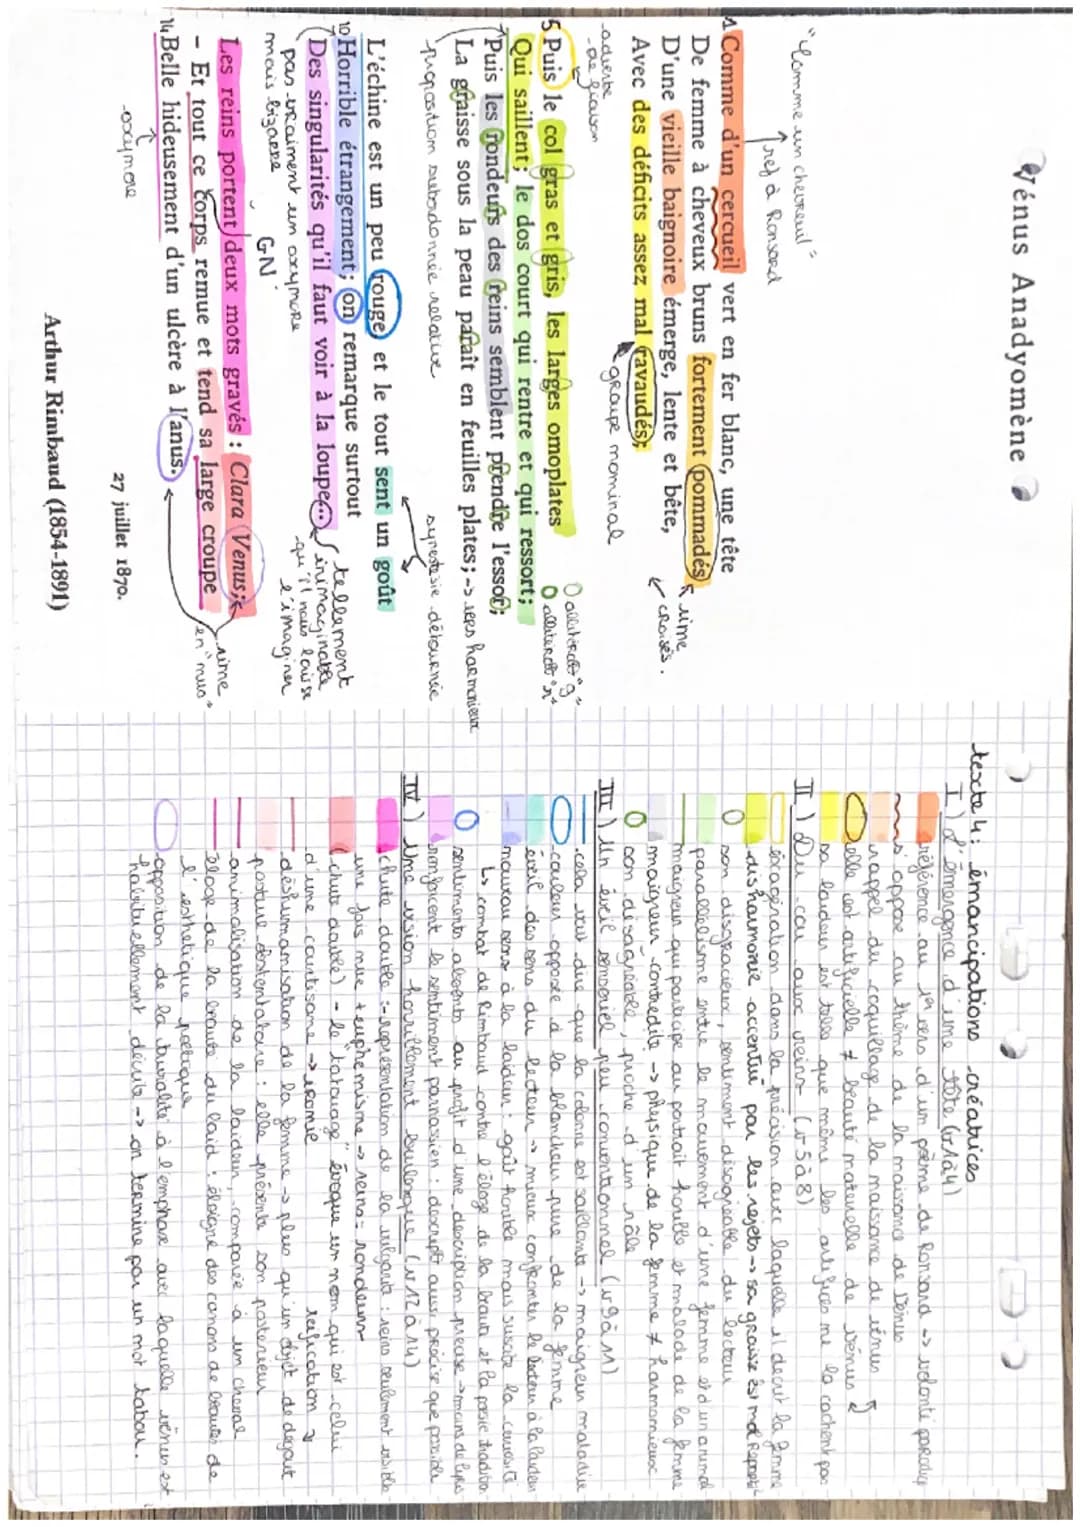 Vénus Anadyomène
"Comme un chevreuil"
ref à Ronsard
1 Comme d'un cercueil vert en fer blanc, une tête
De femme à cheveux bruns fortement pommadés
rime croisés.
D'une vieille baignoire émerge, lente et bête,
Avec des déficits assez mal ravaudés;
groupe nominal
-adverbe
-de liaison
5 Puis le col gras et gris, les larges omoplates
Qui saillent; le dos court qui rentre et qui ressort;
Puis les rondeurs des reins semblent prendre l'essor;
La graisse sous la peau paraît en feuilles plates;
-> rejet harmonieux
proposition subordonnée relative
synestésie détournée
L'échine est un peu rouge, et le tout sent un goût
10 Horrible étrangement; on remarque surtout
Des singularités qu'il faut voir à la loupe...
tellement
inimaginable
qu'il nous laisse
l'imaginer
pas vraiment un oxymore
mais bizarre
GN
Les reins portent deux mots gravés : Clara Venus;
- Et tout ce corps remue et tend sa large croupe
14 Belle hideusement d'un ulcère à l'anus.
rime
en "nus"
-oxymore
27 juillet 1870.
Arthur Rimbaud (1854-1891)
texte 4: émancipations créatrices
I) L'émergence d'une tête (v1à4)
référence au 1er vers d'un poème de Ronsard -> volonté parodiq
s'oppose au thème de la naissance de Vénus
rappel du coquillage de la naissance de vénus
elle est artificielle ≠ beauté naturelle de vénus
sa laideur est telle que même les artifices ne la cachent pas
II) Du cou aux reins (v5à8)
éxagération dans la précision avec laquelle il décrit la femme
disharmonie accentué par les rejets -> sa graisse est mal répartit
son disgracieux, sentiment désagréable du lecteur
parallélisme entre le mouvement d'une femme et d'un animal
maigreur qui participe au portrait horrible et malade de la femme
maigreur contredite -> physique de la femme ≠ harmonieux
son désagréable, proche d'un râle
III) Un éveil sensoriel peu conventionnel (v9à11)
cela veut dire que la colonne est saillante -> maigreur maladive
couleur opposée à la blancheur pure de la femme
éveil des sens du lecteur -> mieux confronter le lecteur à la laideur
nouveau sens à la laideur: goût horrible mais suscite la curiosité
↳ combat de Rimbaud contre l'éloge de la beauté et la poésie tradition
sentiments absents au profit d'une description précise -> moins de lyris
renforcent le sentiment parnassien: descript aussi précise que possible
IV) Une vision horriblement burlesque (v12à14)
chute double :- représentation de la vulgarité: reins seulement visible
une fois nue + euphémisme -> reins = rondeurs
(chute double) - le tatouage évoque un nom qui est celui
d'une courtisane -> ironie
réification
déshumanisation de la femme -> plus qu'un objet de dégout
posture ostentatoire: elle présente son posterieur
animalisation de la laideur, comparée à un cheval
éloge de la beauté du laid: éloigne des canons de beautés de
l'esthétique poétique
opposition de la trivialité à l'emphase avec laquelle vénus est
habituellement décrite -> on termine par un mot tabou.